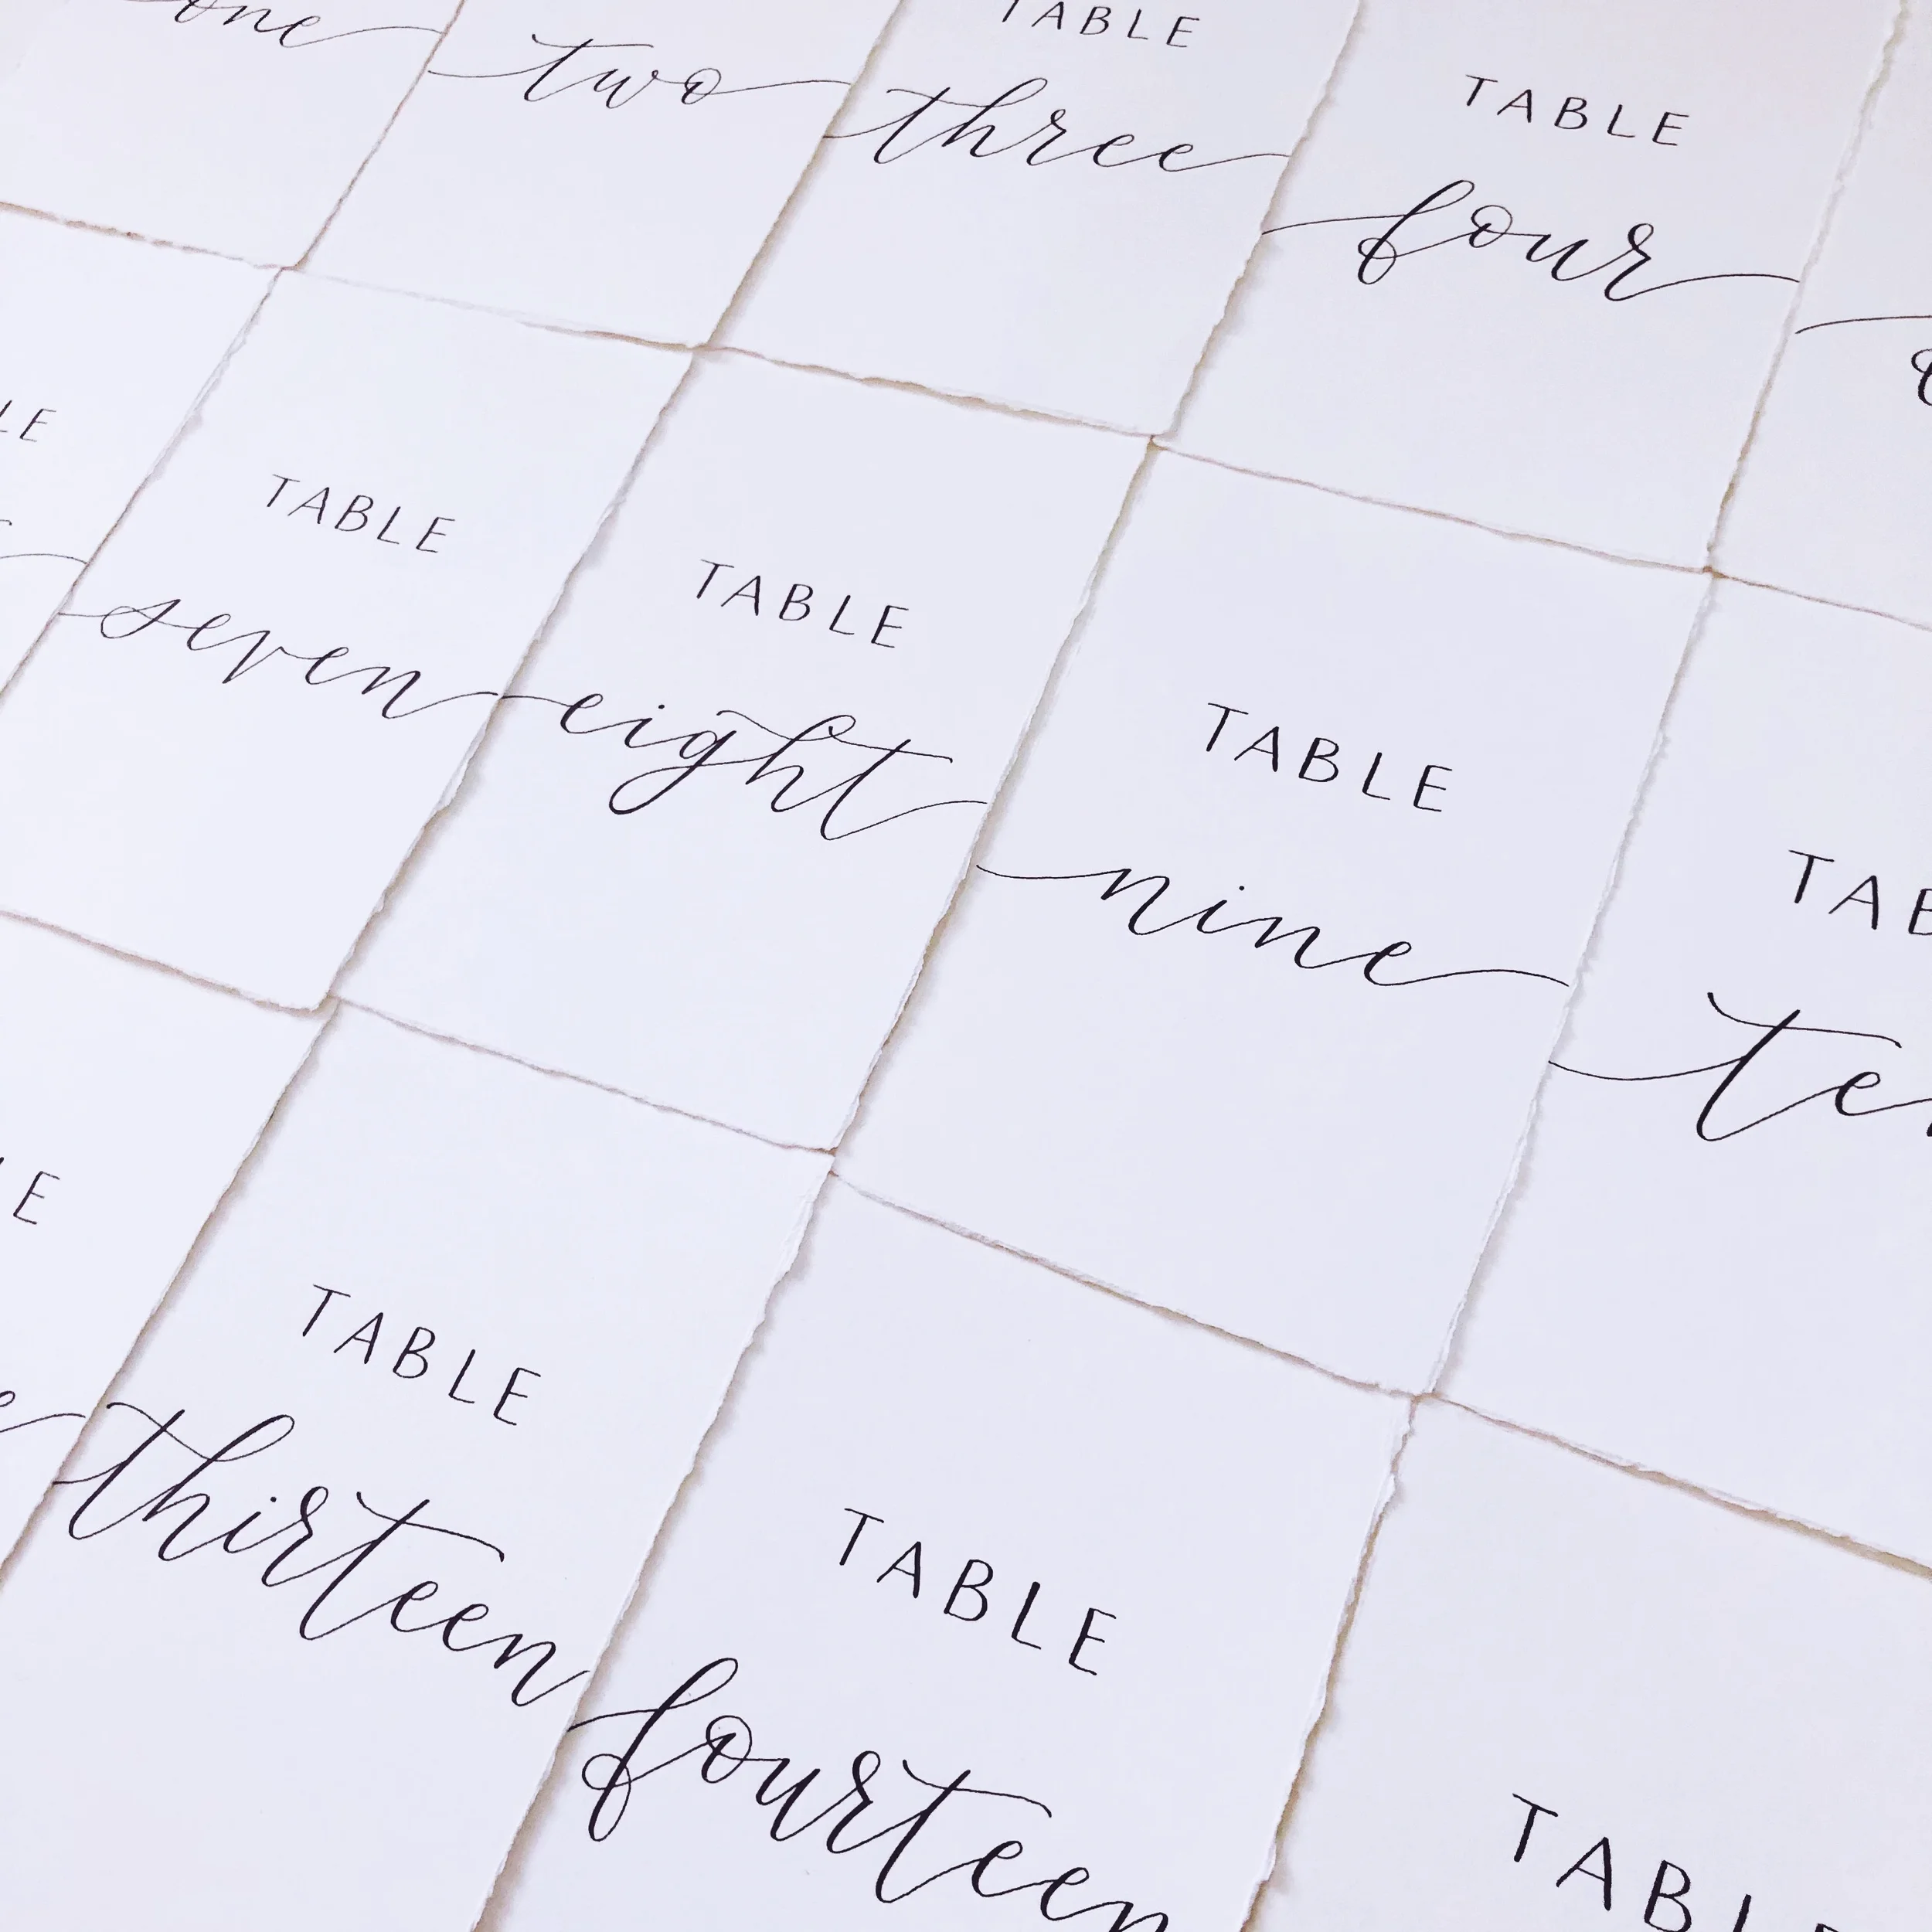 one
two
TABLE
three
TABLE
four
TABLE
seven
TABLE
eight
TABLE
nine
TAB
te
LE
E
TABLE
thirteen
TABLE
fourteen
TABL